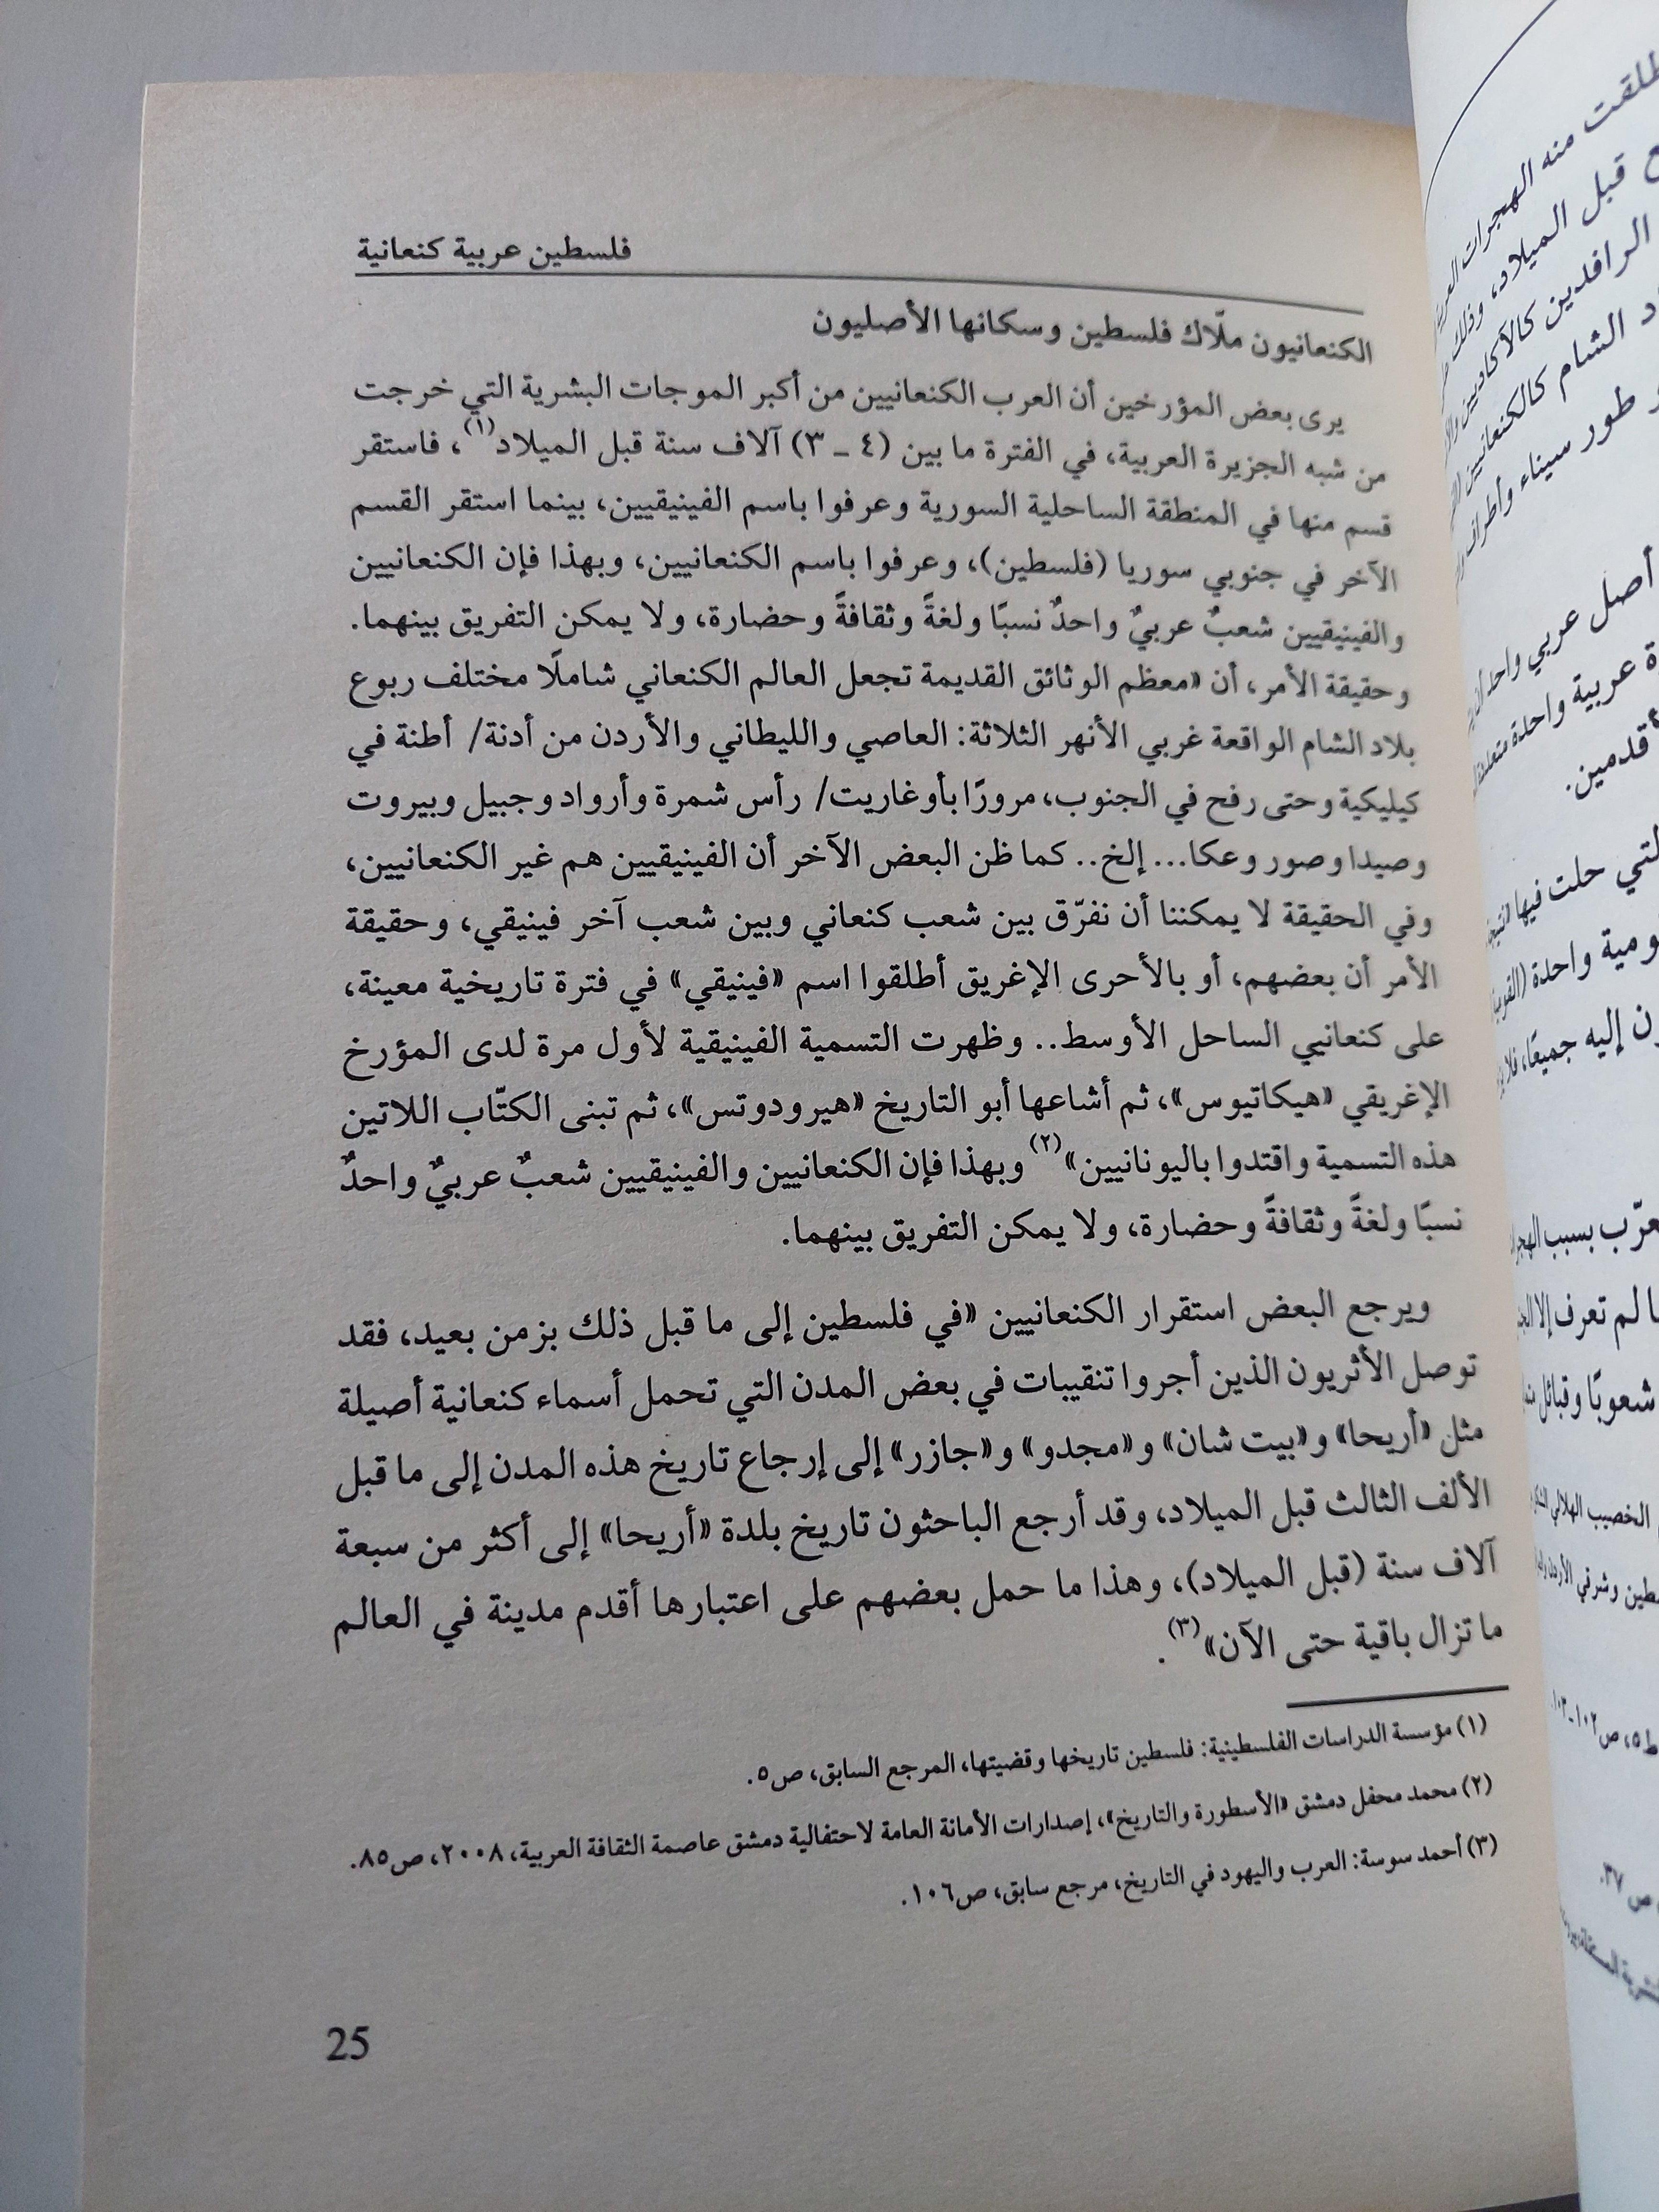 فلسطين عربية كنعانية
الكنعانيون ملّاك فلسطين وسكانها الأصليون
يرى بعض المؤرخين أن العرب الكنعانيين من أكبر الموجات البشرية التي خرجت
من شبه الجزيرة العربية، في الفترة ما بين (٤ ـ ٣) آلاف سنة قبل الميلاد(١)، فاستقر
قسم منها في المنطقة الساحلية السورية وعرفوا باسم الفينيقيين، بينما استقر القسم
الآخر في جنوبي سوريا (فلسطين)، وعرفوا باسم الكنعانيين، وبهذا فإن الكنعانيين
والفينيقيين شعبٌ عربيٌ واحدٌ نسبًا ولغةً وثقافةً وحضارة، ولا يمكن التفريق بينهما.
وحقيقة الأمر، أن «معظم الوثائق القديمة تجعل العالم الكنعاني شاملًا مختلف ربوع
بلاد الشام الواقعة غربي الأنهر الثلاثة: العاصي والليطاني والأردن من أدنة/ أطنة في
كيليكية وحتى رفح في الجنوب، مرورًا بأوغاريت/ رأس شمرة وأرواد وجبيل وبيروت
وصيدا وصور وعكا... إلخ.. كما ظن البعض الآخر أن الفينيقيين هم غير الكنعانيين،
وفي الحقيقة لا يمكننا أن نفرّق بين شعب كنعاني وبين شعب آخر فينيقي، وحقيقة
الأمر أن بعضهم، أو بالأحرى الإغريق أطلقوا اسم «فينيقي» في فترة تاريخية معينة،
على كنعانيي الساحل الأوسط.. وظهرت التسمية الفينيقية لأول مرة لدى المؤرخ
الإغريقي «هيكاتيوس»، ثم أشاعها أبو التاريخ «هيرودوتس»، ثم تبنى الكتّاب اللاتين
هذه التسمية واقتدوا باليونانيين»(٢) وبهذا فإن الكنعانيين والفينيقيين شعبٌ عربيٌ واحدٌ
نسبًا ولغةً وثقافةً وحضارة، ولا يمكن التفريق بينهما.
ويرجع البعض استقرار الكنعانيين «في فلسطين إلى ما قبل ذلك بزمن بعيد، فقد
توصل الأثريون الذين أجروا تنقيبات في بعض المدن التي تحمل أسماء كنعانية أصيلة
مثل «أريحا» و«بيت شان» و«مجدو» و«جازر» إلى إرجاع تاريخ هذه المدن إلى ما قبل
الألف الثالث قبل الميلاد، وقد أرجع الباحثون تاريخ بلدة «أريحا» إلى أكثر من سبعة
آلاف سنة (قبل الميلاد)، وهذا ما حمل بعضهم على اعتبارها أقدم مدينة في العالم
ما تزال باقية حتى الآن»(٣).
(١) مؤسسة الدراسات الفلسطينية: فلسطين تاريخها وقضيتها، المرجع السابق، ص٥.
(٢) محمد محفل دمشق «الأسطورة والتاريخ»، إصدارات الأمانة العامة لاحتفالية دمشق عاصمة الثقافة العربية، ٢٠٠٨، ص٨٥.
(٣) أحمد سوسة: العرب واليهود في التاريخ، مرجع سابق، ص١٠٦.
25
منه الهجرات
قبل الميلاد، وذلك
الرافدين كالأكاديين
الشام كالكنعانيين
طور سيناء وأطراف
أصل عربي واحد
عربية واحدة
أقدمين.
التي حلت فيها
واحدة
إليه جميعًا،
بسبب
لم تعرف إلا
شعوبًا وقبائل
الخصيب الهلالي
وشرقي الأردن
ط٥، ص١٠٢-١٠٣.
ص ٣٧.